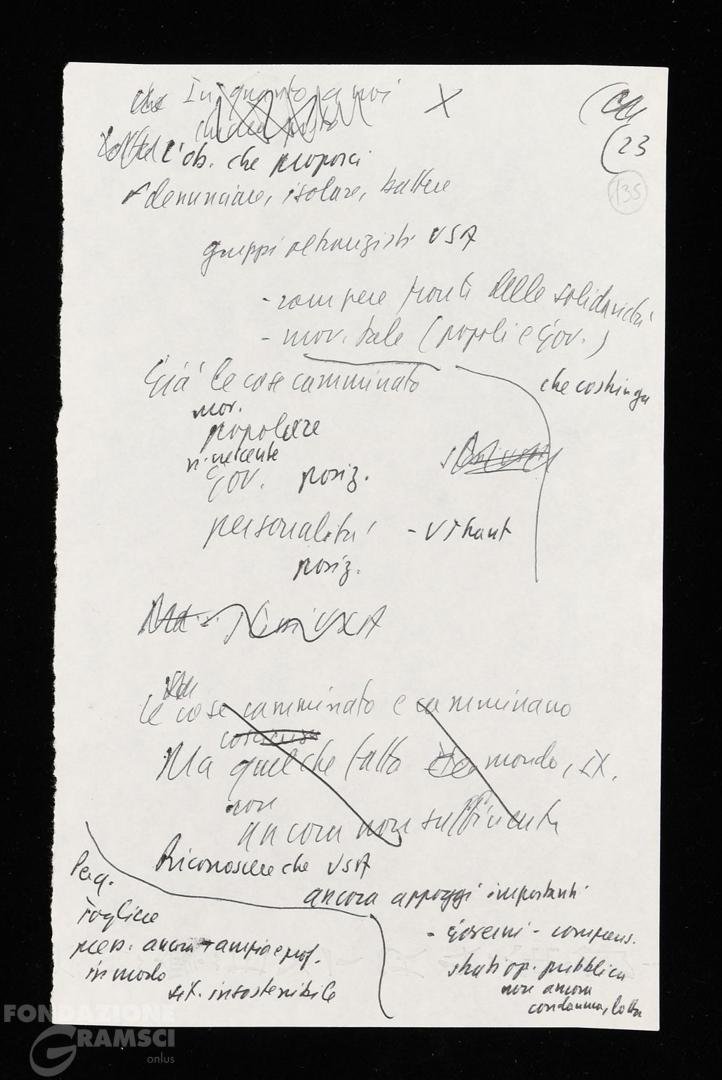 che In quanto a noi X
23
135
L'ob. che proporci
denunciare, isolare, battere
gruppi oltranzisti USA
- rompere fronti delle solidarietà
- mov. tale (popoli e Gov.)
che costringa
Già le cose camminato
mov.
popolare
Gov. posiz.
personalità - U Thant
posiz.
Ma USA
le cose camminato e camminano
coscienza
Ma quel che fatto mondo, sx.
non
ancora non sufficiente
Riconoscere che USA
ancora appoggi importanti
- Governi - compens.
strati op. pubblica
non ancora
condanna, lotta
Perq.
Togliere
press. ancora + ampia e prof.
in modo
sit. insostenibile
FONDAZIONE
GRAMSCI
onlus